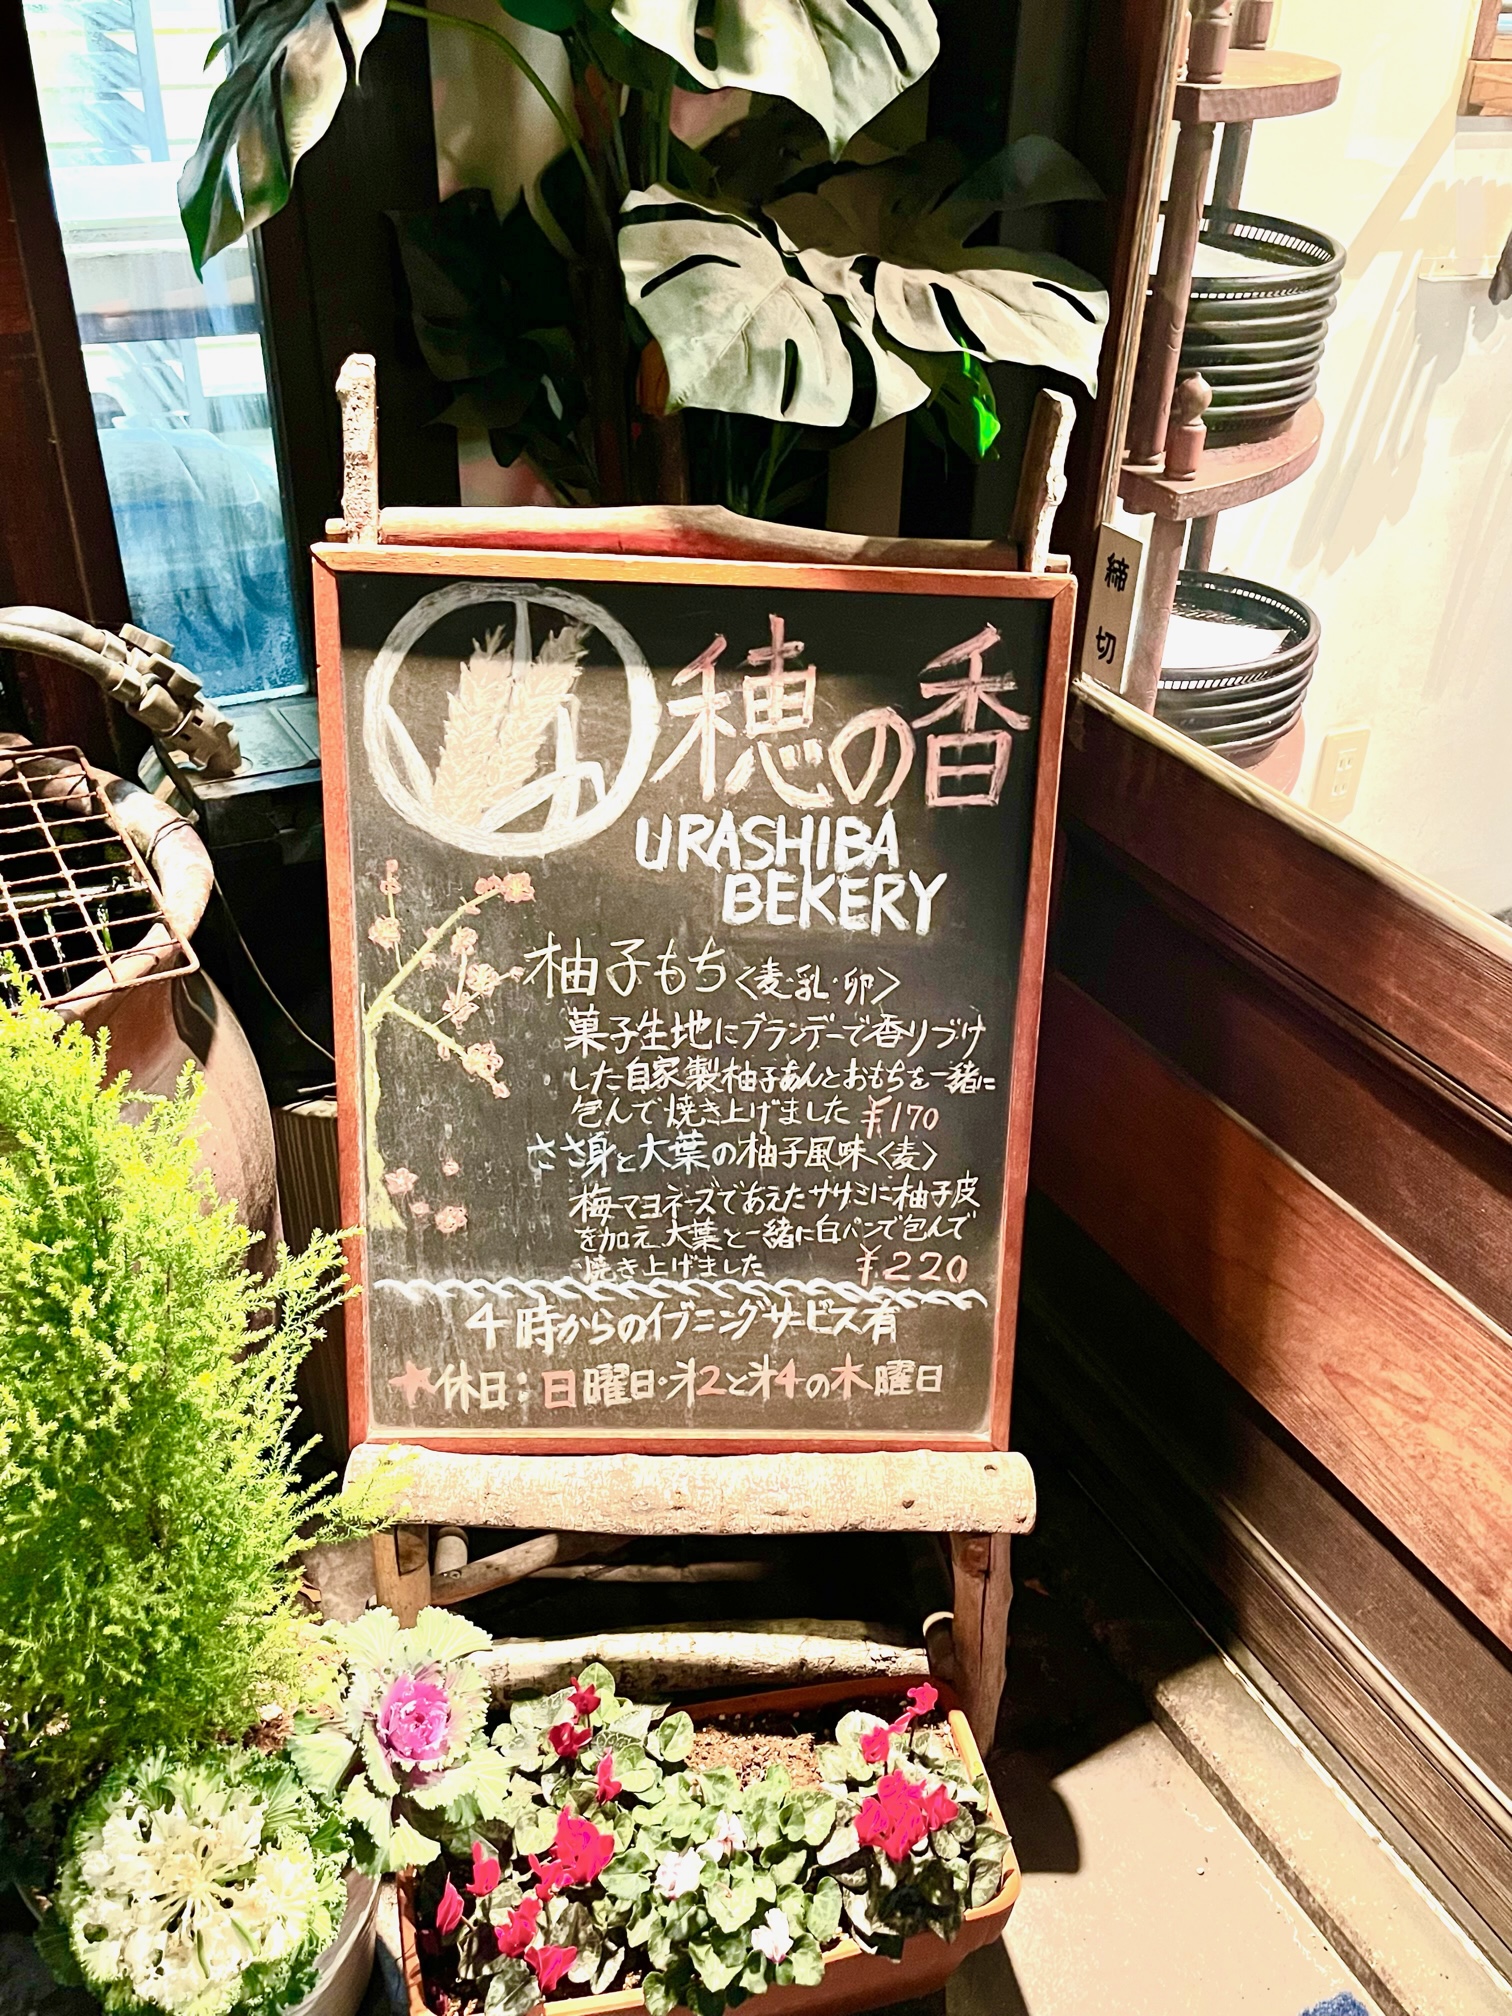 穂の香
URASHIBA
BEKERY
柚子もち〈麦・乳・卵〉
菓子生地にブランデーで香りづけ
した自家製柚子あんとおもちを一緒に
包んで焼き上げました ¥170
ささ身と大葉の柚子風味〈麦〉
梅マヨネーズであえたササミに柚子皮
を加え、大葉と一緒に白パンで包んで
焼き上げました ¥220
4時からのイブニングサービス有
★休日:日曜日・第2と第4の木曜日
締切